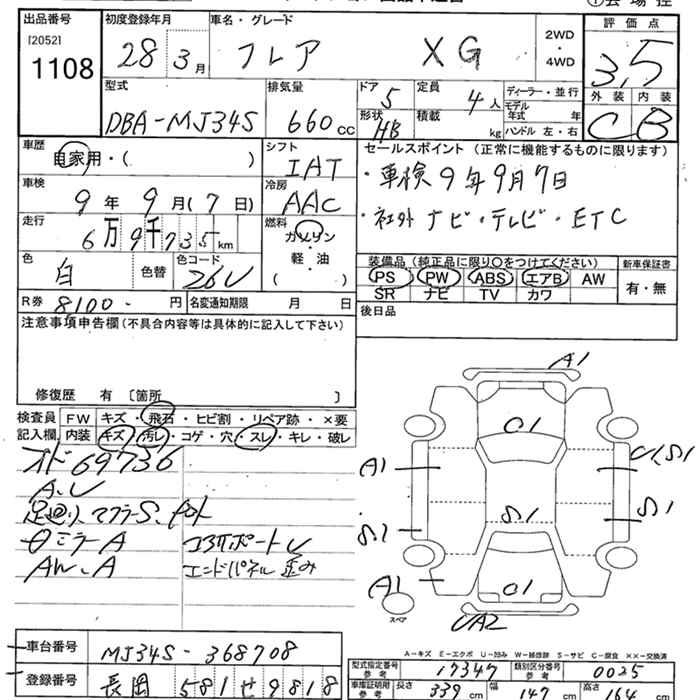 出品番号 初度登録年月 車名・グレード 評価点
[2052]
1108
28 3月 フレア XG 2WD・4WD 3.5
外装 内装
C B
型式 排気量 ドア 定員 ディーラー・並行
DBA-MJ34S 660cc 5 4人 モデル年式 年
形状 積載
HB kg ハンドル 左・右
車歴 シフト セールスポイント(正常に機能するものに限ります)
自家用・( ) IAT ・車検9年9月7日
車検 冷房
9年9月(7日) AAC ・社外ナビ・テレビ・ETC
走行 燃料
6万9千735km ガソリン・軽・油( )
色 色替 色コード 装備品(純正品に限り○をつけてください) 新車保証書
白 26U PS PW ABS エアB AW 有・無
SR ナビ TV カワ
R券 8100- 円 名変通知期限 月 日 後日品
注意事項申告欄(不具合内容等は具体的に記入して下さい)
修復歴 有 〔箇所 〕
検査員 FW キズ・飛石・ヒビ割・リペア跡・×要
記入欄 内装 キズ・汚レ・コゲ・穴・スレ・キレ・破レ
オド69736
A.U
足廻り、マフラーS.
ミラーA コアサポートU
AW.A エンドパネル歪み
A1
U1
A1 U1,S1
S1
S1 S1
A1 U1
スペア
UA2
A-キズ E-エクボ U-凹み W-補修跡 S-サビ C-腐食 XX-交換済
車台番号 MJ34S-368708
登録番号 長岡 581 せ 9818
型式指定番号 参考 17347 類別区分番号 参考 0025
車庫証明用 参考 長さ 339cm 幅 147cm 高さ 164cm